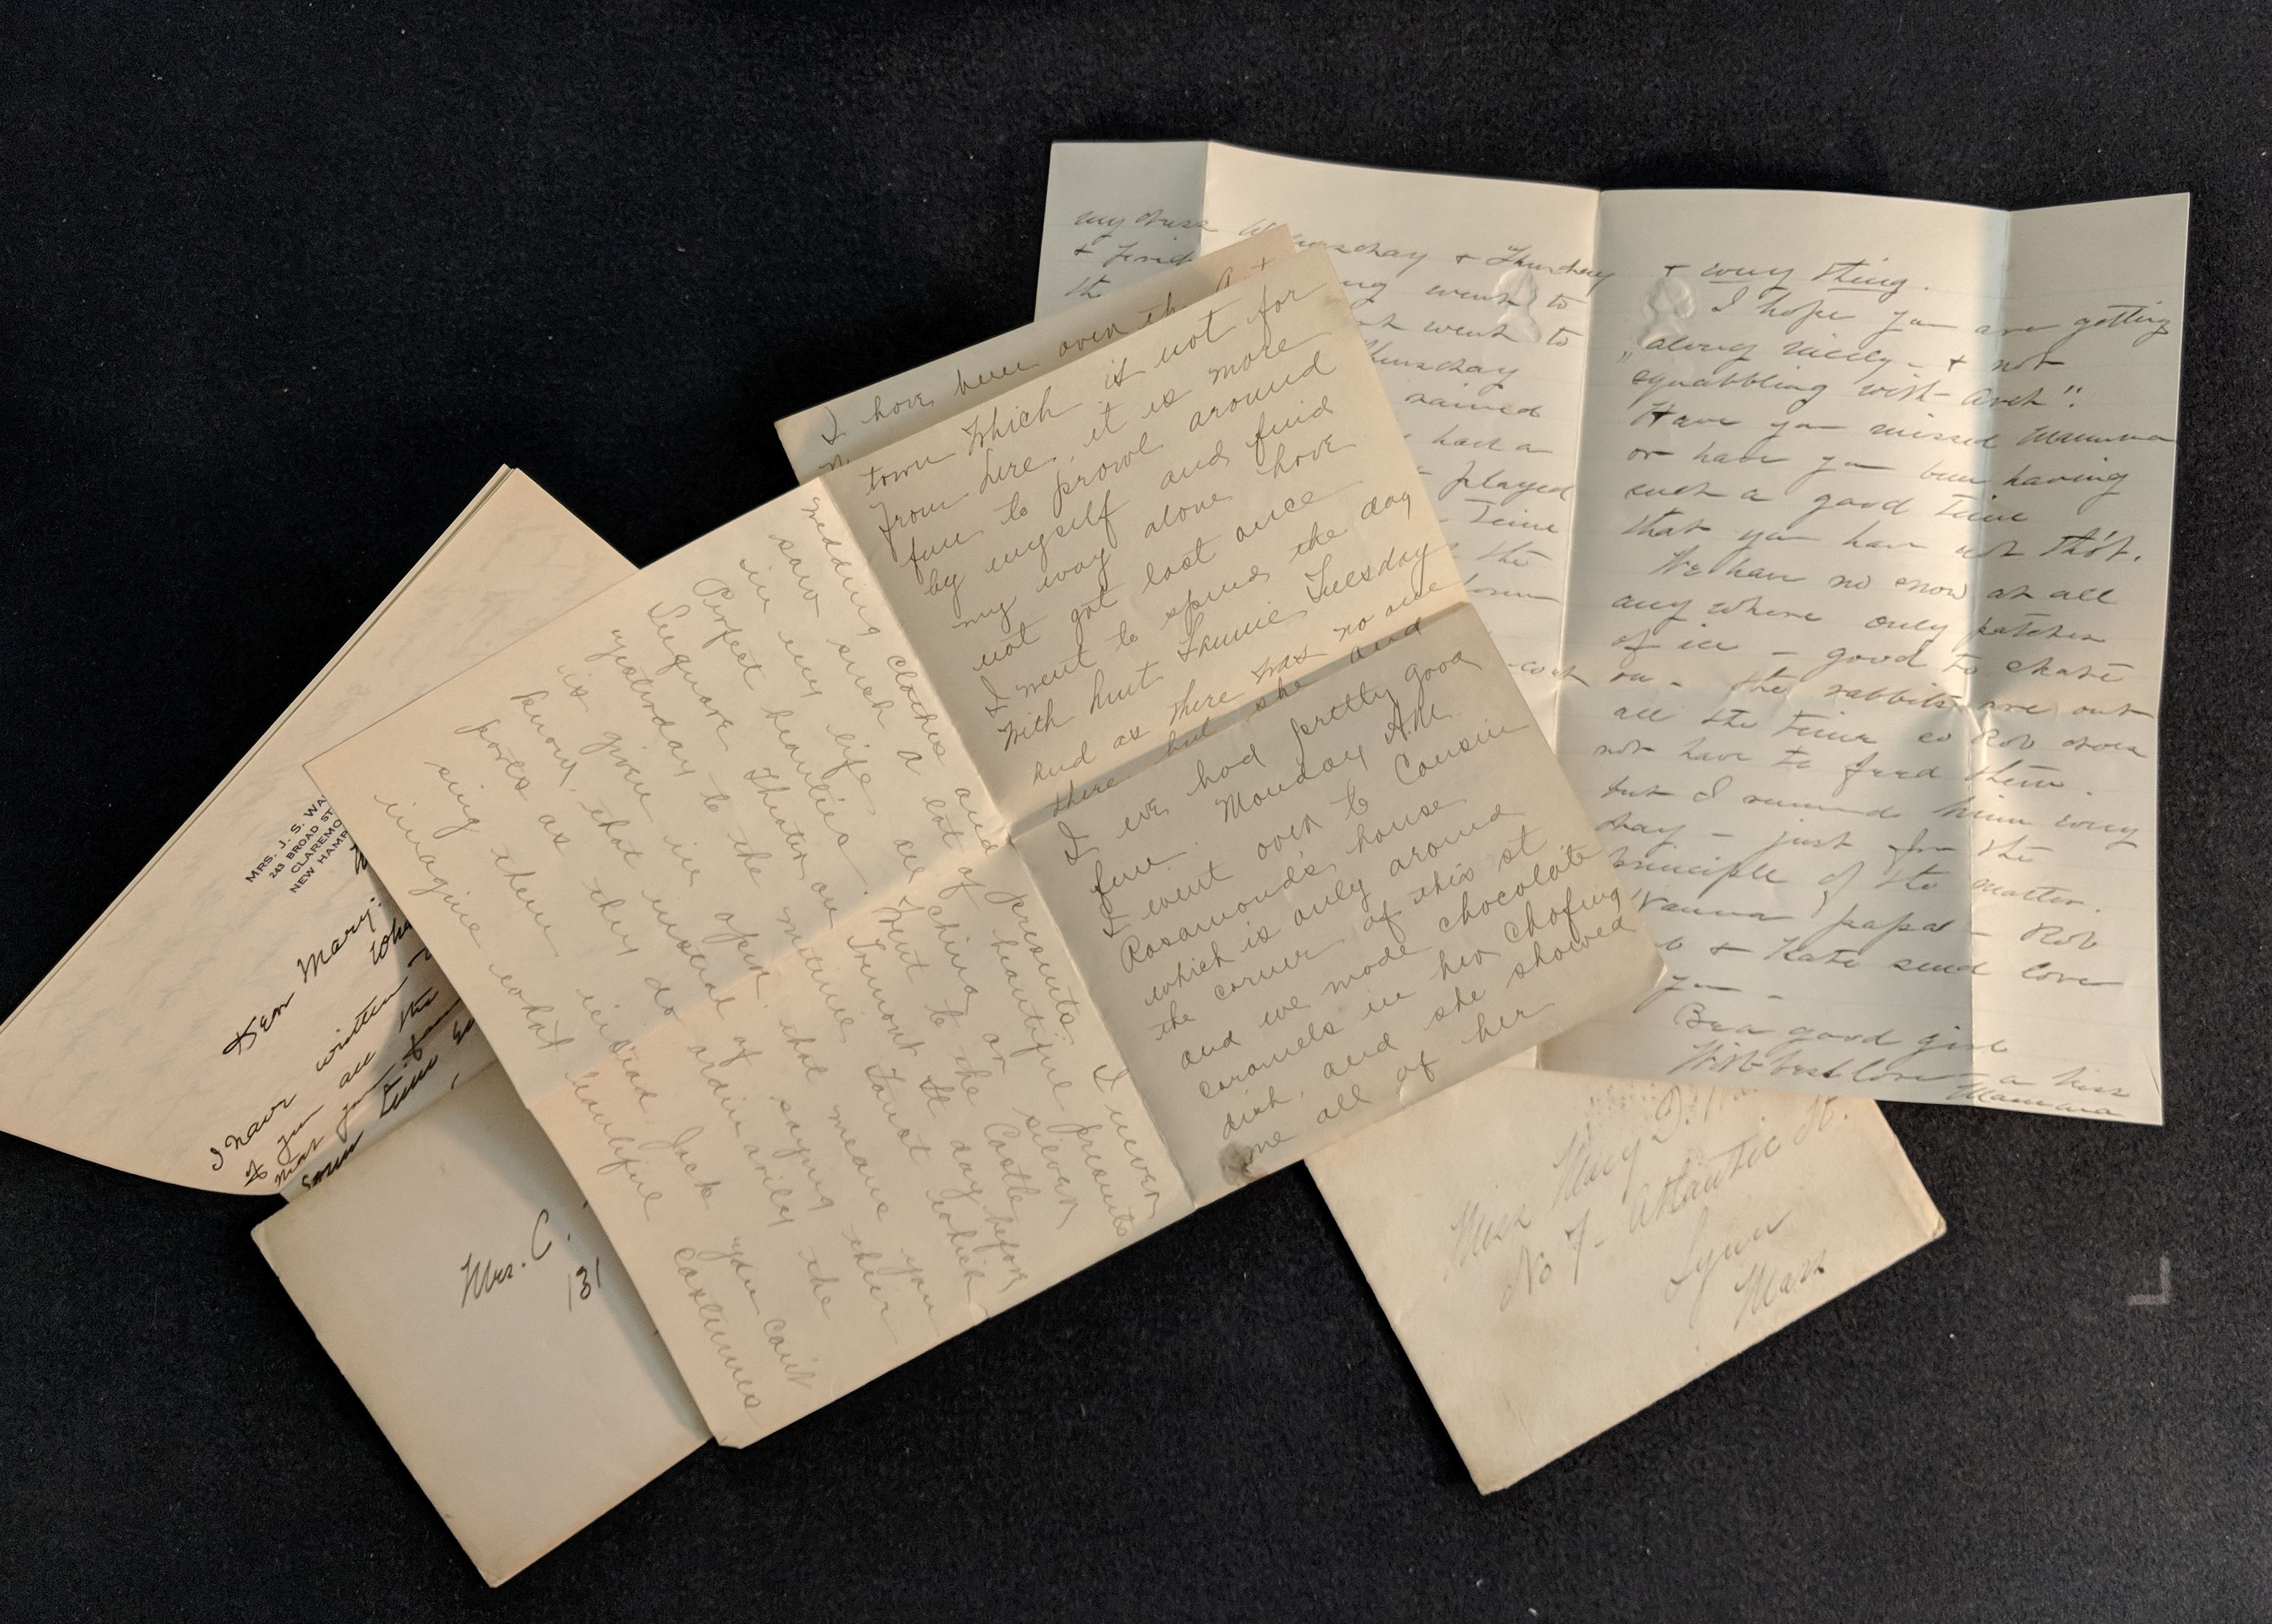 my dress Wednesday & Thursday
& finish
the
ng went to
ot went to
Thursday
rained
had a
played
time
the
down
-coat
& every thing.
I hope you are getting
"along nicely - & not
squabbling with Arch".
Have you missed Mamma
or have you been having
such a good time
that you have not tho't.
We have no snow at all
any where only patches
of ice - good to skate
on. The rabbits are out
all the time so Rob does
not have to feed them.
but I remind him every
day - just for the
principle of the matter.
Nanna papa - Rob
& Kate send love
you -
Be a good girl
With best love - a kiss
Mamma
I have been over th
town which is not for
from here, it is more
fun to prowl around
by myself and find
my way alone have
not got lost once
I went to spend the day
with Aunt Fannie Tuesday
and as there was no one
there but she and
I we had pretty good
fun. Monday A.M.
I went over to Cousin
Rosamond's house
which is only around
the corner of this st
and we made chocolate
caramels in her chafing
dish, and she showed
me all of her
wedding clothes and presents. I never
saw such a lot of beautiful presents
in my life, all china or silver,
Perfect beauties. Went to the Castle
Square Theater on Tremont St day before
yesterday to the matinee, Faust which
is given in opera. that means you
know, that instead of saying their
parts as they do ordinarily the
sing them instead. Jack you can't
imagine what beautiful costumes
MRS. J. S. WA
243 BROAD ST
CLAREMO
NEW HAMP
Dear Mary:
I have written
of you all the
Mrs. C.
131
Miss Mary D.
No 7- Atlantic St.
Lynn
Mass